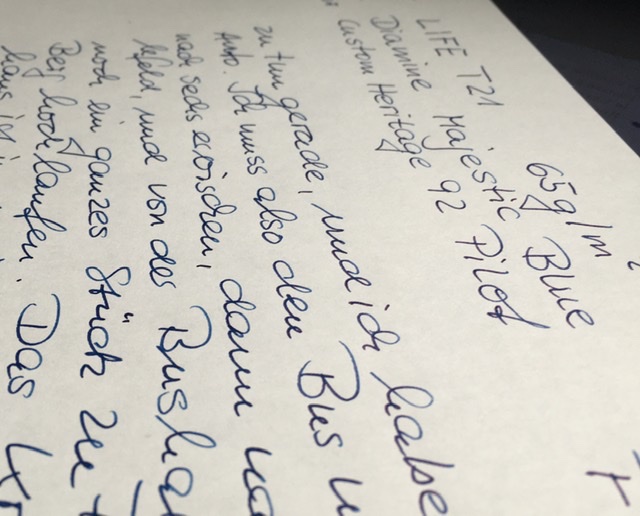 LIFE T21 65g/m²
Diamine Majestic Blue
Custom Heritage 92 Pilot
zu tun gerade, und ich habe
Auto. Ich muss also den Bus
nach sechs erwischen, dann
und von der
noch ein ganzes Stück zu
Berg hochlaufen. Das